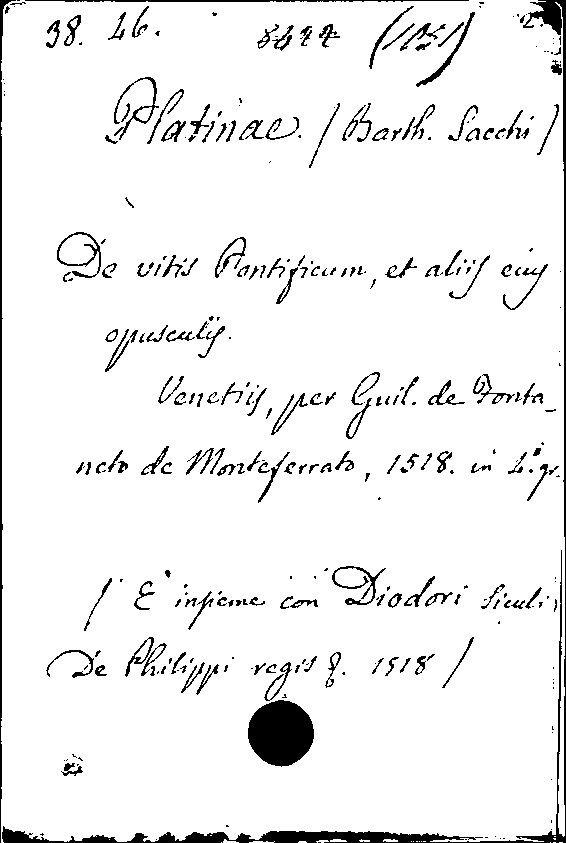 38. 46.
Platinae. / Barth. Sacchi /
De vitis Pontificum, et aliis eius
opusculis.
Venetiis, per Guil. de Fonta-
neto de Monteferrato, 1518. in 4.° gr.
/ E' insieme con Diodori Siculi,
De Philippi regis &. 1518 /